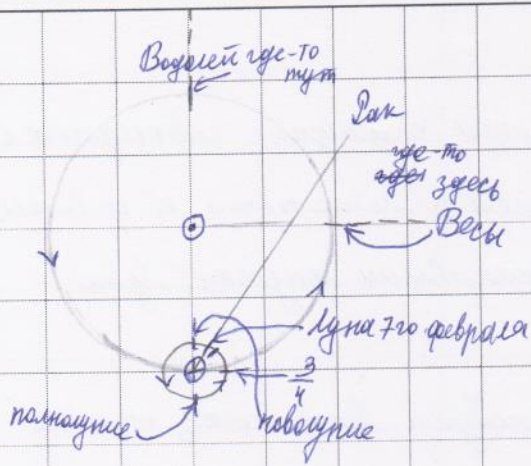 Водолей где-то
тут
Рак
где-то
здесь
Весы
Луна 7го февраля
3
4
полнолуние
новолуние